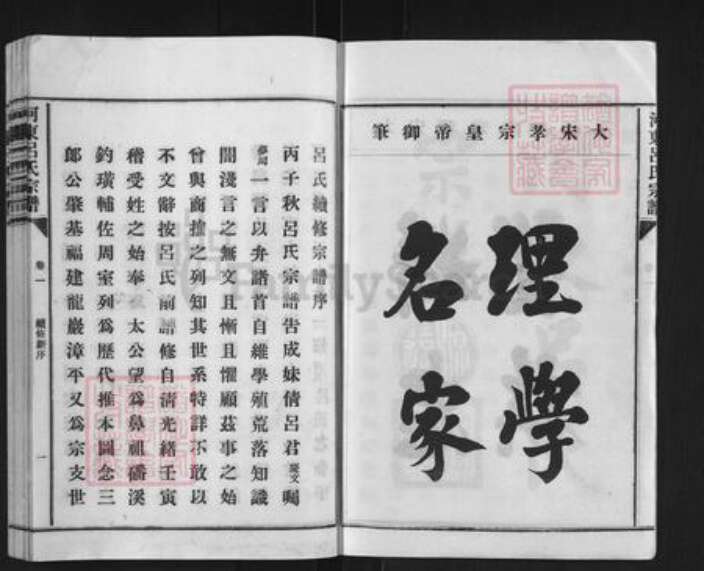 河東呂氏宗譜
大宋孝宗皇帝御筆
理學
名家
呂氏續修宗譜序
丙子秋呂氏宗譜告成妹倩呂君慶文囑
夢周一言以弁譜首自維學殖荒落知識
闇淺言之無文且慚且懼顧茲事之始
曾與商搉之列知其世系特詳不敢以
不文辭按呂氏前譜修自清光緒壬寅
稽受姓之始奉太公望為鼻祖磻溪
釣璜輔佐周室列為歷代推本圖念三
郎公肇基福建龍巖漳平又為宗支世
河東呂氏宗譜
卷一
續修新序
一
FamilySearch